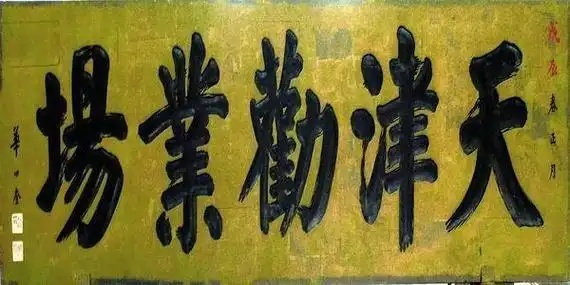 戊辰春正月
天津勸業場
華世奎